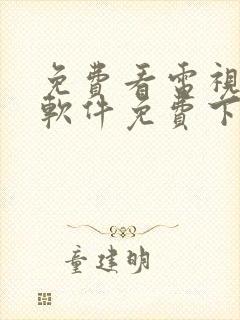 免費看電視
軟件免費下
童建明